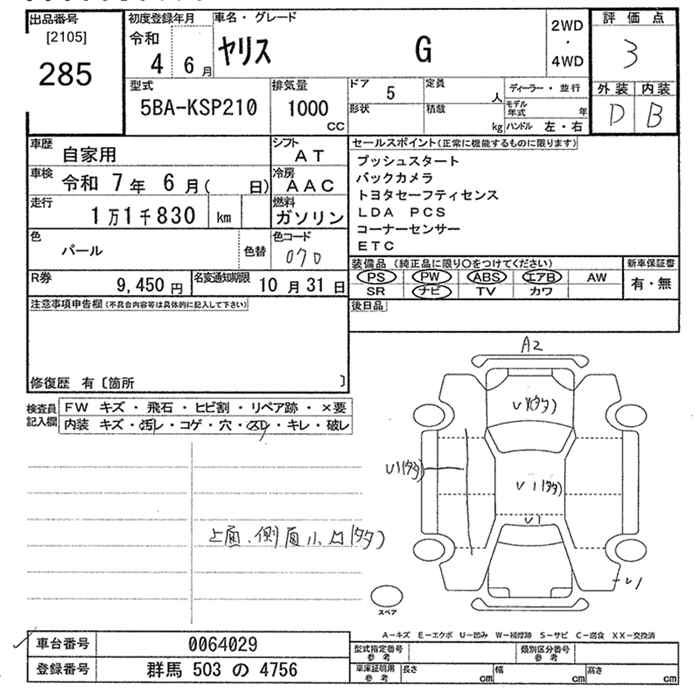 出品番号
[2105]
285
初度登録年月
令和
4 6 月
車名・グレード
ヤリス G
2WD
・
4WD
評価点
3
外装 内装
D B
型式
5BA-KSP210
排気量
1000
CC
ドア 5
形状
定員
人
積載
kg
ディーラー・並行
モデル年式 年
ハンドル 左・右
車歴
自家用
シフト
AT
車検 令和 7 年 6 月( 日)
冷房
AAC
走行
1万1千830 km
燃料
ガソリン
色
パール
色替
色コード
070
R券
9,450 円
名変通知期限
10 月 31 日
セールスポイント(正常に機能するものに限ります)
プッシュスタート
バックカメラ
トヨタセーフティセンス
LDA PCS
コーナーセンサー
ETC
装備品(純正品に限り〇をつけてください)
新車保証書
PS PW ABS エアB AW
有・無
SR ナビ TV カワ
後日品
注意事項申告欄(不具合内容等は具体的に記入して下さい)
修復歴 有〔箇所 〕
検査員
記入欄
FW キズ・飛石・ヒビ割・リペア跡・×要
内装 キズ・汚レ・コゲ・穴・スレ・キレ・破レ
上面、側面小凸(タタ)
A2
U1(タタ)
U1(タタ)
U1(タタ)
U1
U1
スペア
A-キズ E-エクボ U-凹み W-補修跡 S-サビ C-腐食 XX-交換済
車台番号 0064029
登録番号 群馬 503 の 4756
型式指定番号
参考
類別区分番号
参考
車庫証明用
参考
長さ cm
幅 cm
高さ cm